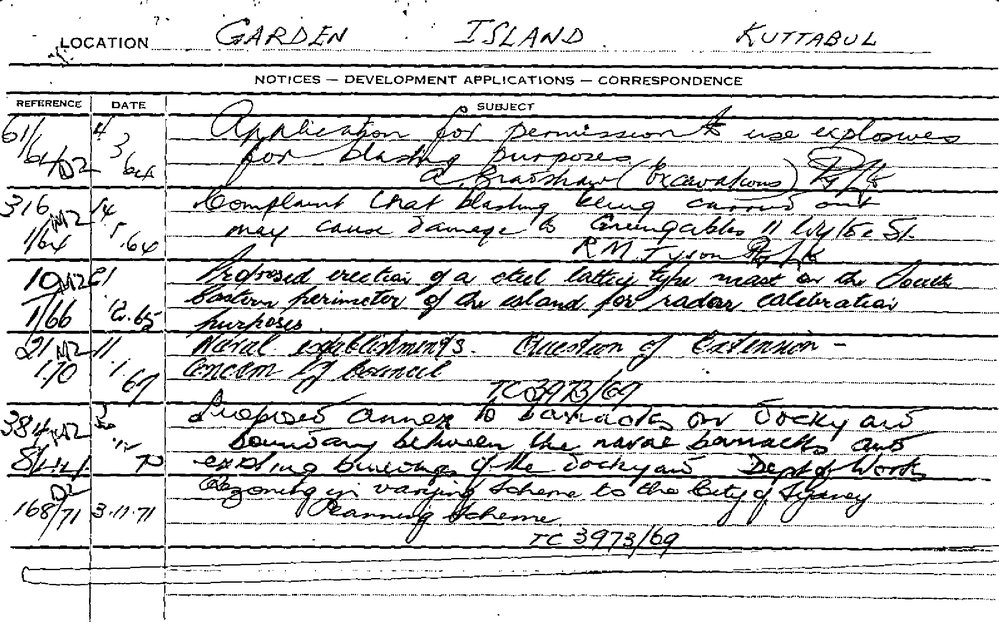 LOCATION GARDEN ISLAND KUTTABUL
NOTICES — DEVELOPMENT APPLICATIONS — CORRESPONDENCE
REFERENCE DATE SUBJECT
61/ 4 Application for permission to use explosives
64/D2 3 64 for blasting purposes
A. Bradshaw (Excavations)
316 M2 14 Complaint that blasting being carried out
1/64 5.64 may cause damage to Greengables 11 Wylde St.
R M Tyson
10 M2 21 Proposed erection of a steel lattice type mast on the South
1/66 12.65 Eastern perimeter of the island for radar calibration
purposes.
21 M2 11 Naval establishments. Question of Extension —
1.70 1. 67 Concern of Council
TC 3973/69
384 M2 Proposed annex to barracks on Dockyard
boundary between the naval barracks and
70 existing buildings of the Dockyard Dept of Works
D2 Rezoning in varying Scheme to the City of Sydney
168/71 3.11.71 Planning Scheme.
TC 3973/69